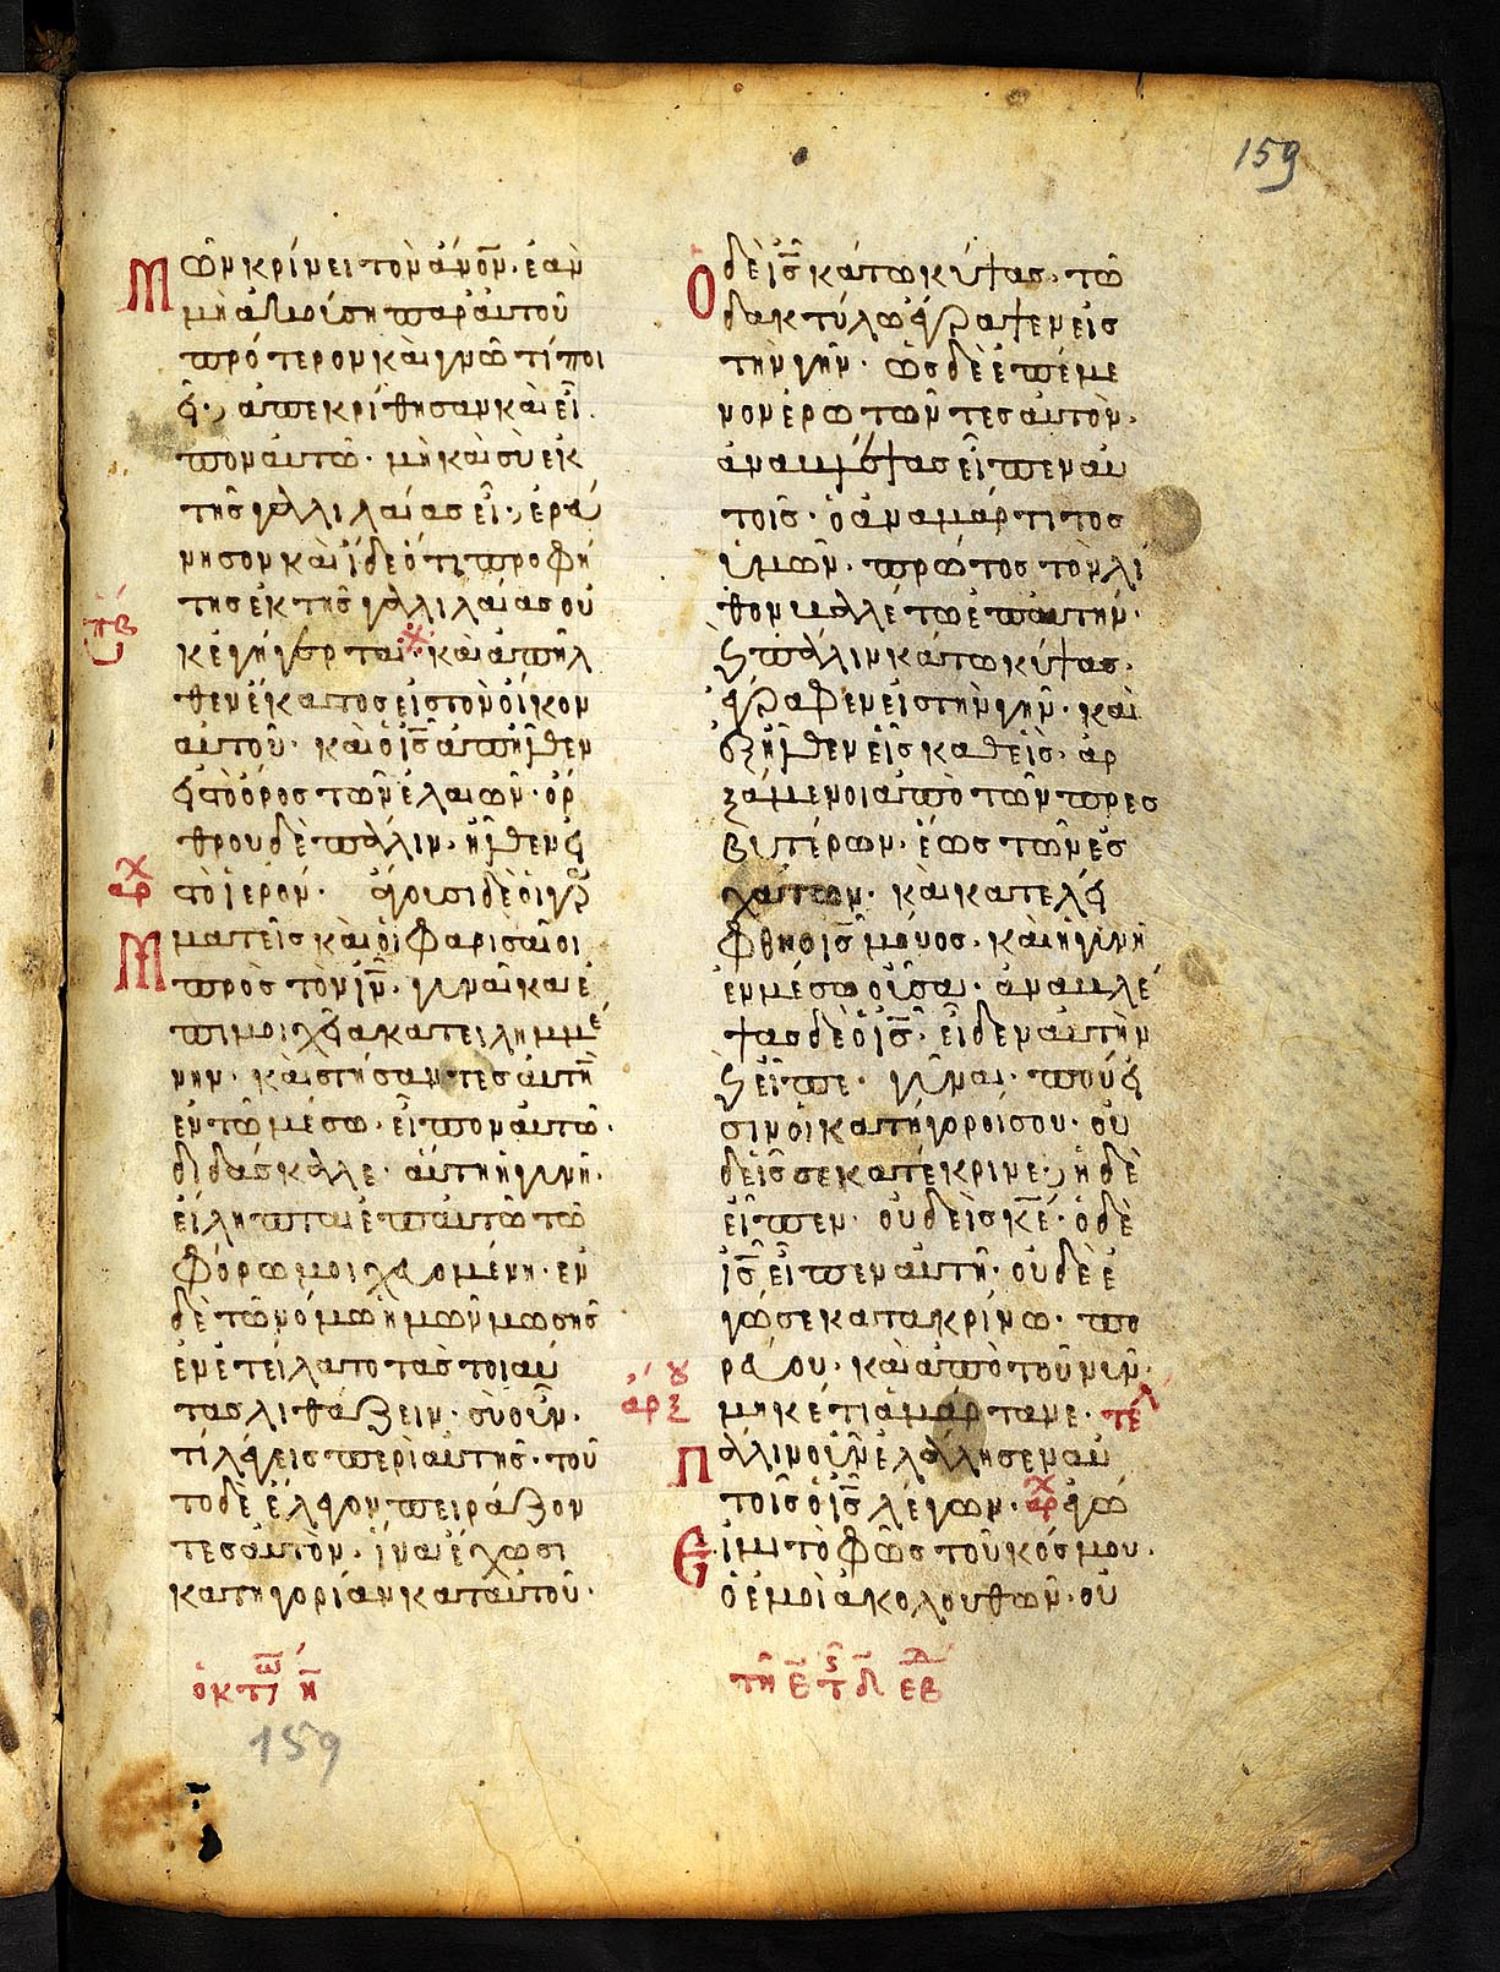 159
μῶν κρίνει τὸν ἄνον· ἐὰν
μὴ ἀκούση παρ' αὐτοῦ
πρότερον καὶ γνῶ τί ποι
εῖ· ἀπεκρίθησαν καὶ εἶ
πον αὐτῶ· μὴ καὶ σὺ ἐκ
τῆς γαλλιλαίας εἶ· ἐρεύ
νησον καὶ ἴδε ὅτι προφή
της ἐκ τῆς γαλλιλαίας οὐ
κ ἐγήγερται· καὶ ἀπῆλ
θεν ἕκαστος εἰς τὸν οἶκον
αὐτοῦ· καὶ ὁ ἰς ἀπῆλθεν
εἰς τὸ ὄρος τῶν ἐλαιῶν· ὄρ
θρου δὲ πάλιν· ἦλθεν εἰς
αρχ τὸ ἱερόν· ἄγουσι δὲ οἱ γρ
μματεῖς καὶ οἱ φαρισαῖοι
πρὸς τὸν ἰν· γυναῖκα ἐ
πὶ μοιχεία κατειλημμέ
νην· καὶ στήσαντες αὐτὴν
ἐν τῶ μέσω· εἶπον αὐτῶ·
διδάσκαλε· αὕτη ἡ γυνὴ·
εἴληπται ἐπαυτῶ τῶ
φόρω μοιχευομένη· ἐν
δὲ τῶ νόμω ἡμῶν μωσῆς
ἐνετείλατο τὰς τοιαύ
τας λιθάζειν· σὺ οὖν·
τί λέγεις περὶ αὐτῆς· τοῦ
το δὲ ἔλεγον πειράζον
τες αὐτὸν· ἵνα ἔχωσι
κατηγορίαν κατ αὐτοῦ·
Ὁ δὲ ἰς κάτω κύψας· τῶ
δακτύλω ἔγραψεν εἰς
τὴν γῆν· ὡς δὲ ἐπέμε
νον ἐρωτῶντες αὐτὸν·
ἀνακύψας εἶπεν αὐ
τοῖς· ὁ ἀναμάρτιτος
ὑμῶν· πρῶτος τὸν λί
θον βαλλέτω ἐπ αὐτήν·
ϗ πάλιν κάτω κύψας·
ἔγραφεν εἰς τὴν γῆν· καὶ
ἐξῆλθεν εἷς καθεὶς· ἀρ
ξάμενοι ἀπὸ τῶν πρεσ
βυτέρων· ἕως τῶν ἐσ
χάτων· καὶ κατελεί
φθη ὁ ἰς μόνος· καὶ ἡ γυνὴ
ἐν μέσω οὖσα· ἀναβλέ
ψας δὲ ὁ ἰς· εἶδεν αὐτὴν
ϗ εἶπε· γύναι· ποῦ εἰ
σιν οἱ κατήγοροι σου· οὐ
δείς σε κατέκρινε· ἡ δὲ
εἶπεν· οὐδεὶς κε· ὁ δὲ
ἰς εἶπεν αὐτῆ· οὐδὲ ἐ
γώ σε κατακρίνω· πο
ρεύου· καὶ ἀπὸ τοῦ νῦν·
μηκέτι ἁμάρτανε· τέλ
Πάλλιν οὖν ἐλάλλησεν αὐ
τοῖς ὁ ἰς λέγων· αρχ ἐγώ
εἰμι τὸ φῶς τοῦ κόσμου·
ὁ ἐμοὶ ἀκολουθῶν· οὐ
159